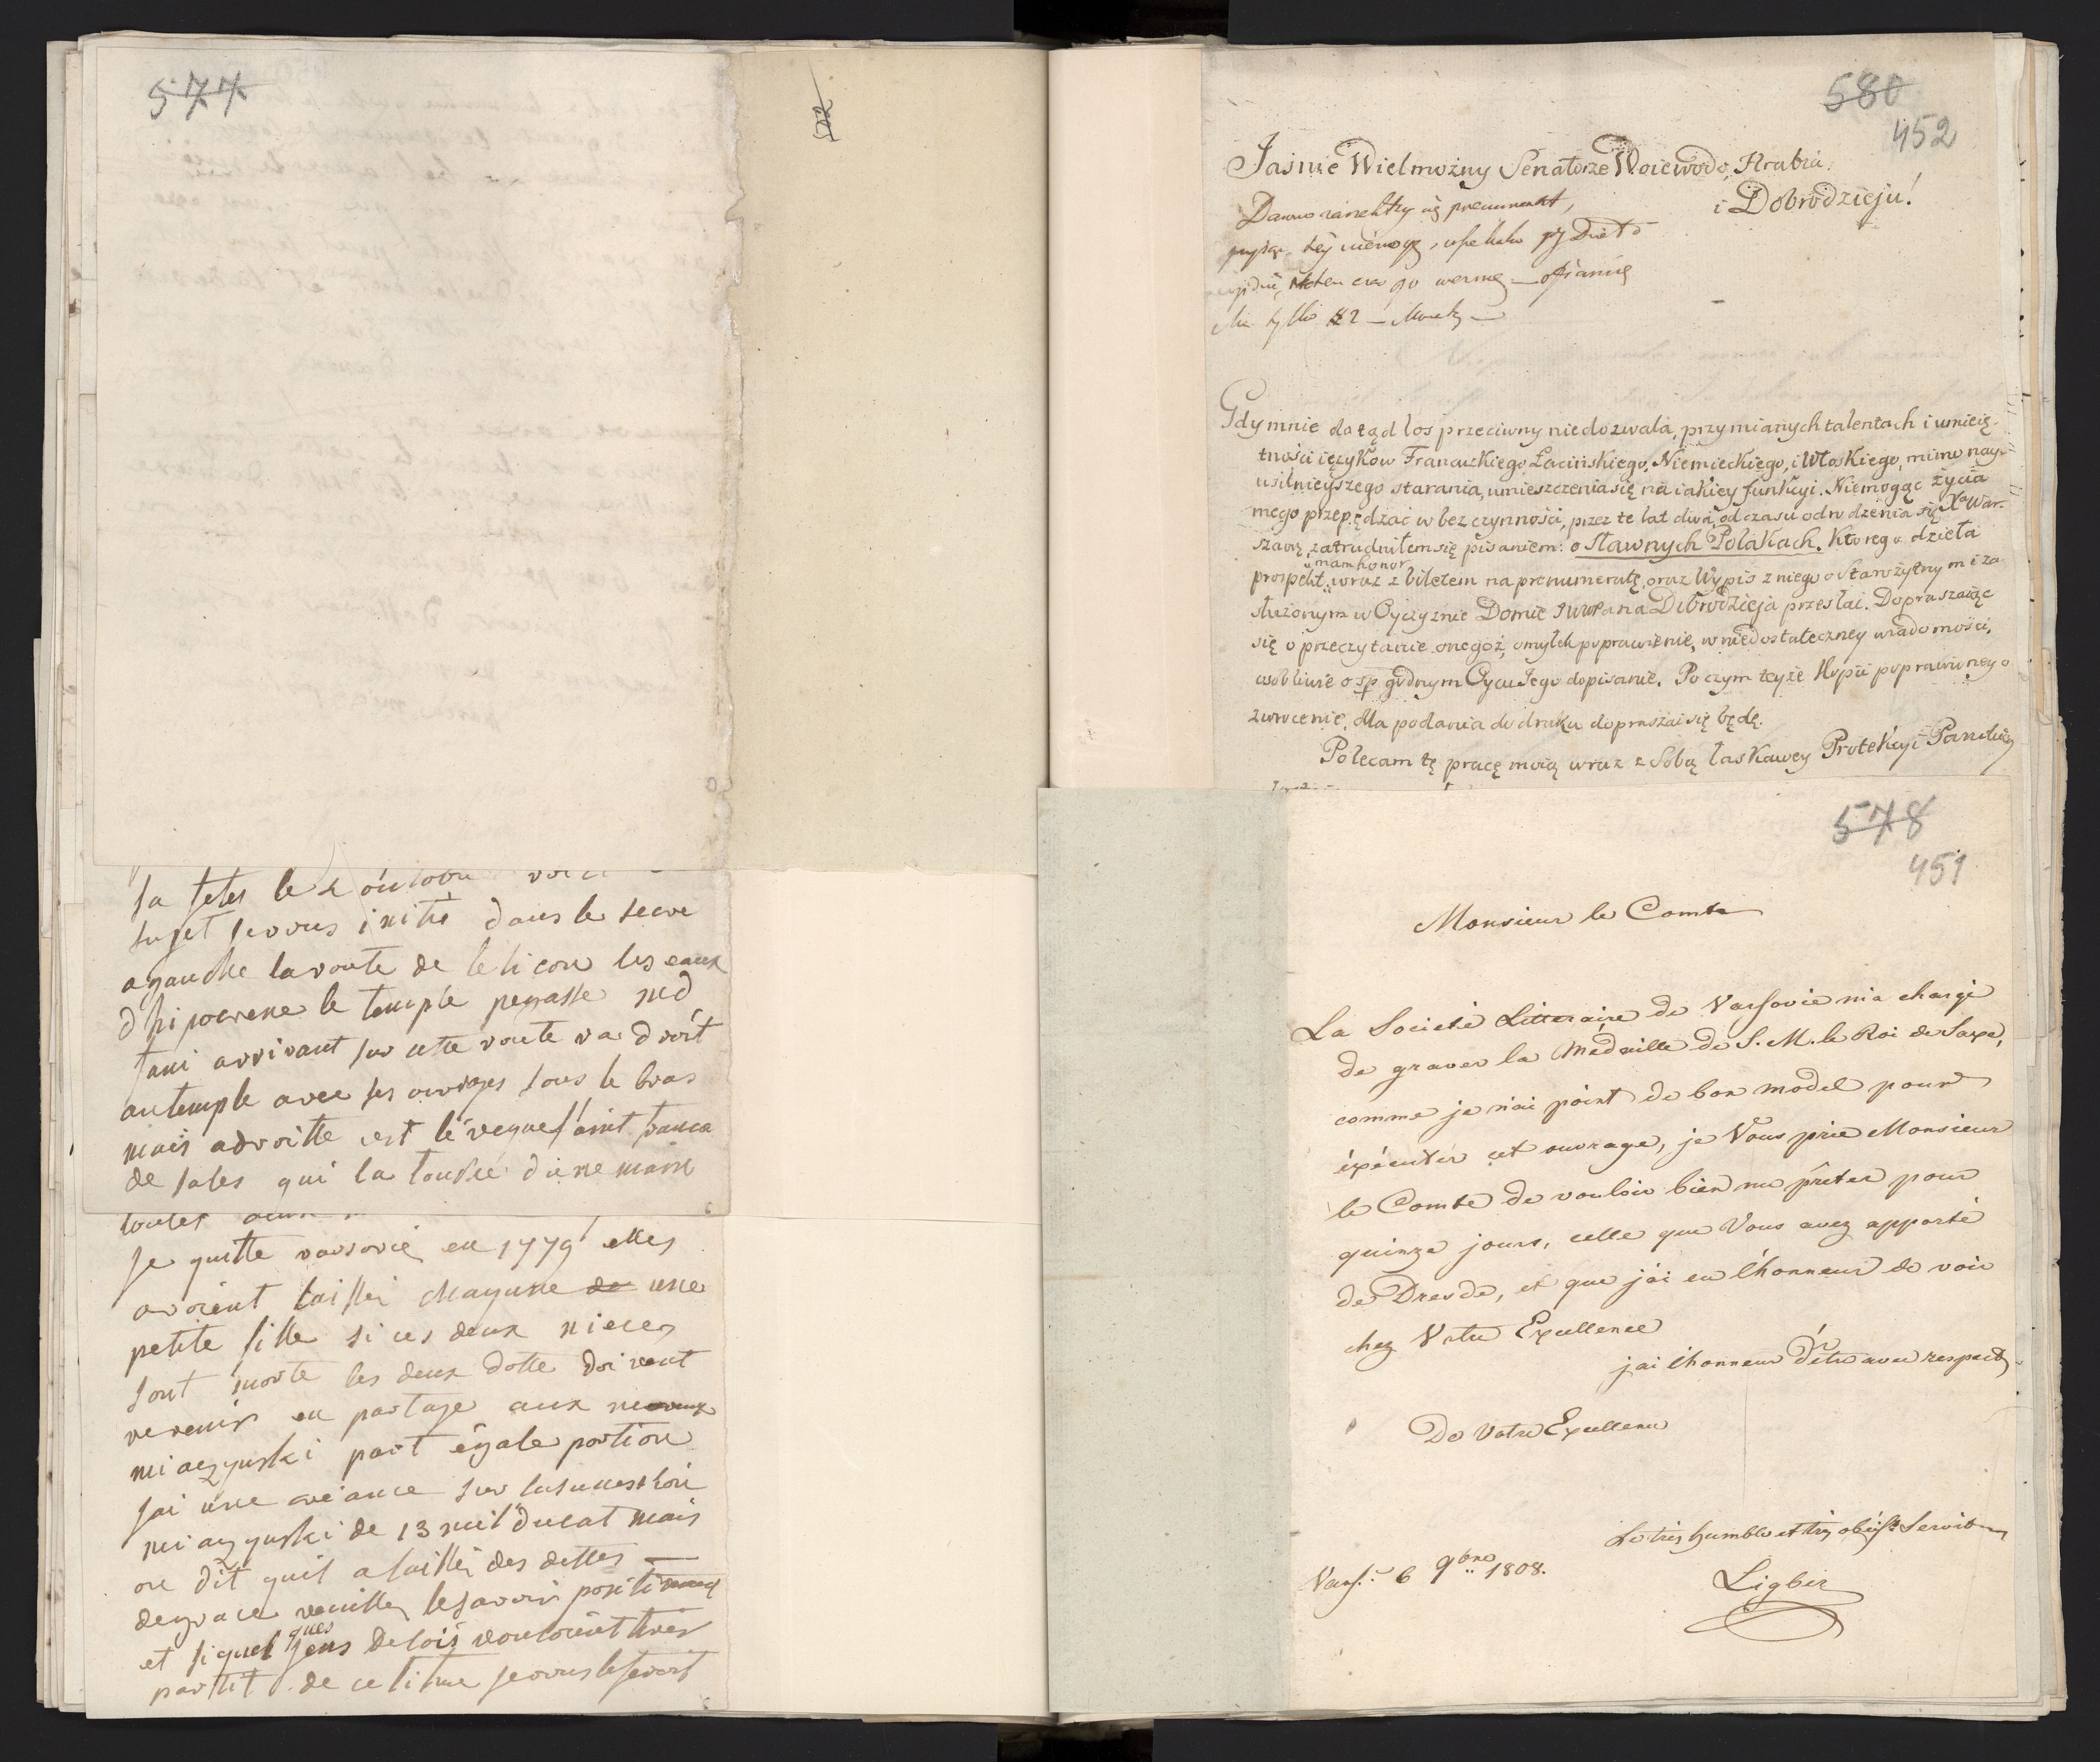 577
sujet je vous initie dans le secre
a gauche la route de le licon les eaux
d hipocrene le temple pegasse med
tani arrivant sur cette route va droit
au temple avec ses ouvrages sous le bras
mais adroitte est le veque saint franca
de sales qui la tousse d'une main
je quitte varsovie en 1779 elles
avoient laissez chaqune de une
petite fille si ces deux nieces
sont morte les deux dotte doivent
revenir en partage aux neveux
miaczynski part égale portion
jai une creance sur la succession
miaczynski de 13 mil ducat mais
on dit quil a laissez des dettes
de grace veuillez le savoir positivement
et si quelques gens de lois vouloient tirer
partit de ce titre je vous le
522
580
452
Jaśnie Wielmożny Senatorze Woiewodo, Hrabia,
i Dobrodzieju!
Gdy mnie dotąd los przeciwny niedozwala, przy mianych talentach i umieię-
tności ięzyków Francuzkiego, Łacińskiego, Niemieckiego, i Włoskiego, mimo nay-
usilnieyszego starania, umieszczenia się na iakiey funkcyi. Niemogąc życia
mego przepędzać w bezczynności, przez te lat dwa, od czasu odrodzenia się Xa War-
szawy, zatrudniłem się pisaniem: o Sławnych Polakach. Którego dzieła
prospekt, mam honor wraz z biletem na prenumeratę, oraz Wypis z niego o Starożytnym i za-
służonym w Oyczyznie Domie JWWPana Dobrodzieja przesłać. Dopraszaiąc
się o przeczytanie onegoż, omyłek poprawienie, w niedostateczney wiadomości,
osobliwie o śp godnym Oycu Jego dopisanie. Poczym teyże Kopii poprawioney o
zwrocenie, dla podania do druku dopraszać się będę.
Polecam tę pracę moią wraz z Sobą łaskawey Protekcyi Pańskiey
578
451
Monsieur le Comte
La Societé Litteraire de Varsovie m'a chargé
de graver la Médaille de S. M. le Roi de Saxe,
comme je n'ai point de bon model pour
éxécuter cet ouvrage, je Vous prie Monsieur
le Comte de vouloir bien me prêter pour
quinze jours, celle que Vous avez apporté
de Dresde, et que j'ai eu l'honneur de voir
chez Votre Excellence
j'ai l'honneur d'être avec respect
De Votre Excellence
Le très humble et très obéisst Serviteur
Vars. 6 9bre 1808.
Ligber